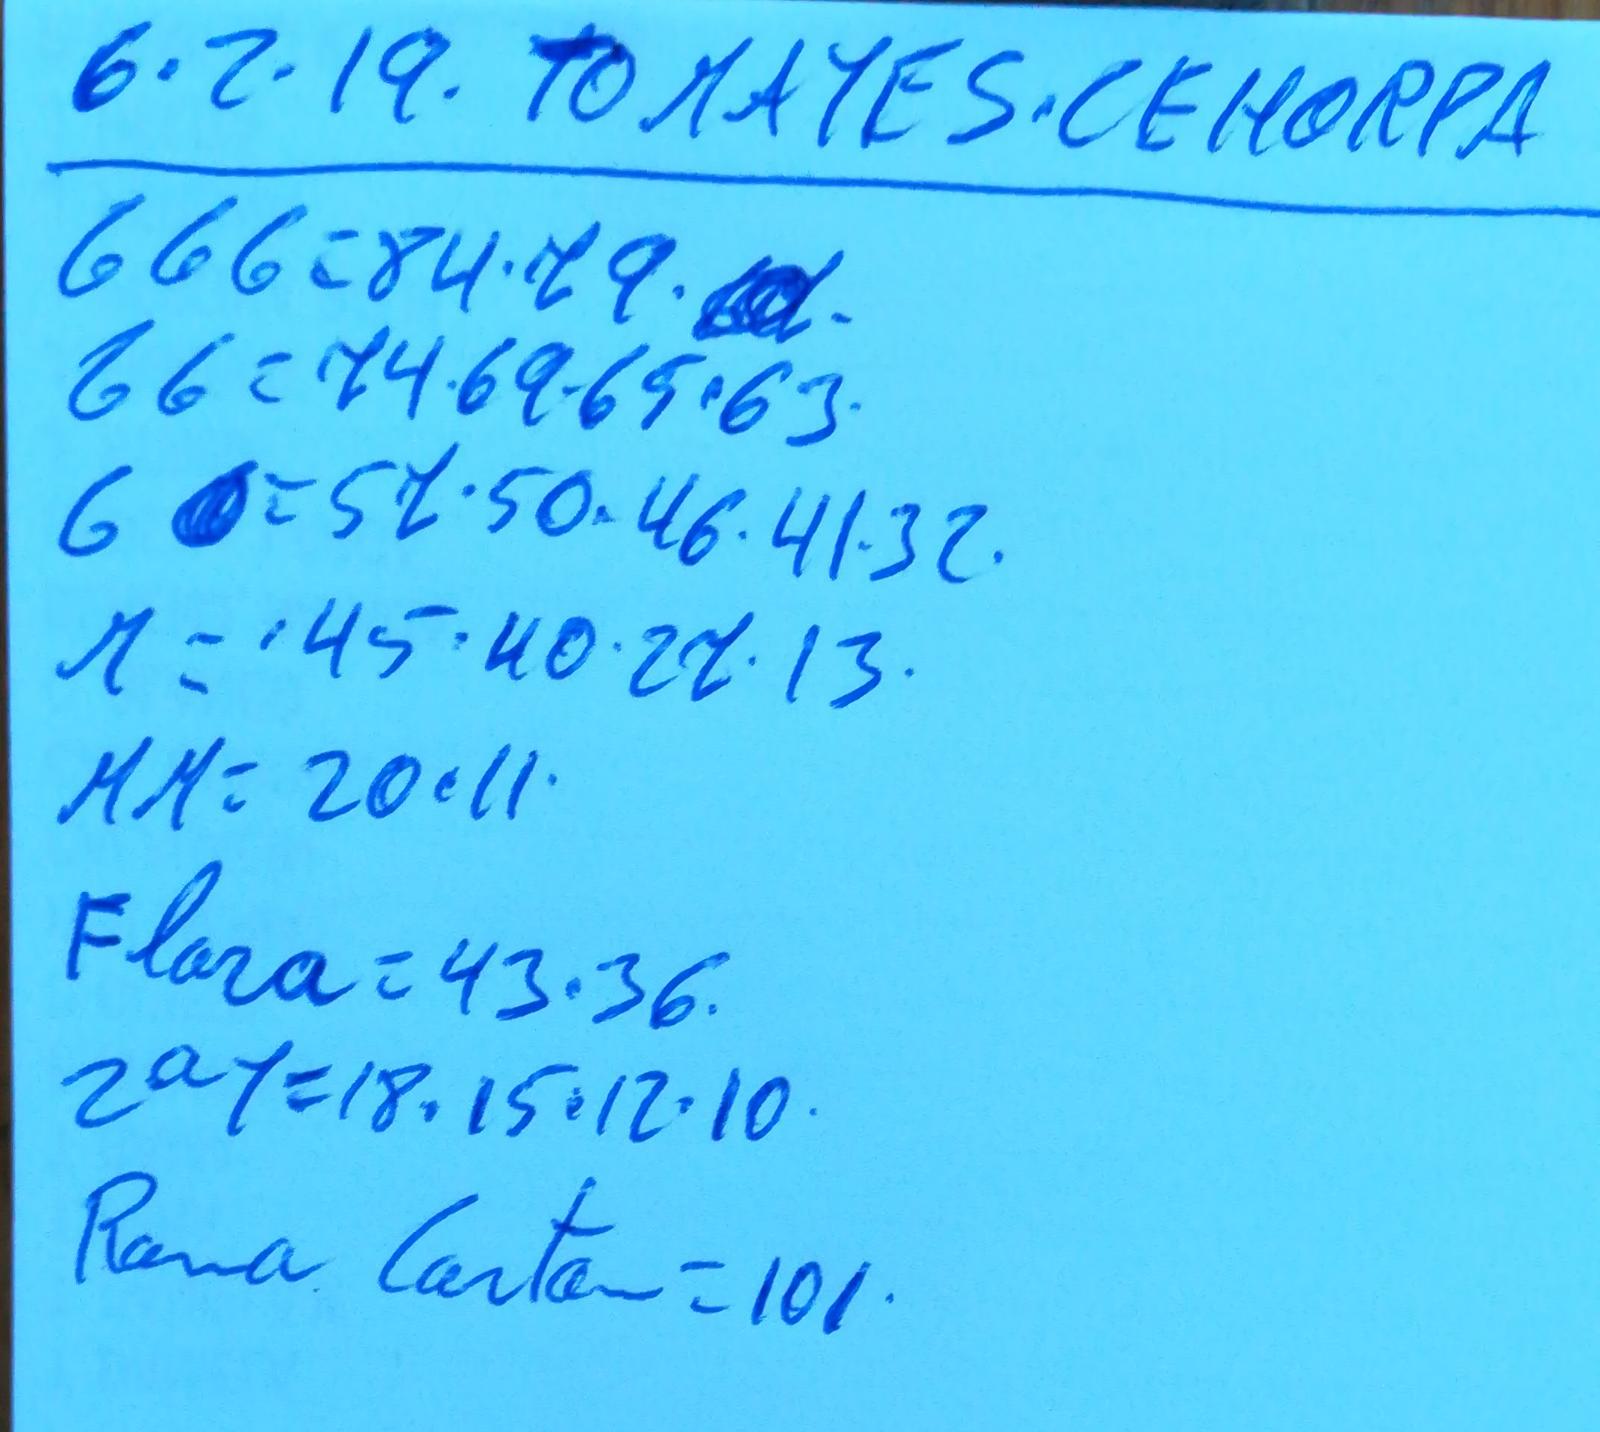 6·2·19. TOMAYES·CEHORPA
666=84·79.
66=74·69·65·63.
6 =57·50·46·41·32.
M=·45·40·27·13.
MM=20·11.
Flora=43·36.
2ªY=18·15·12·10.
Rama Cortan=101.